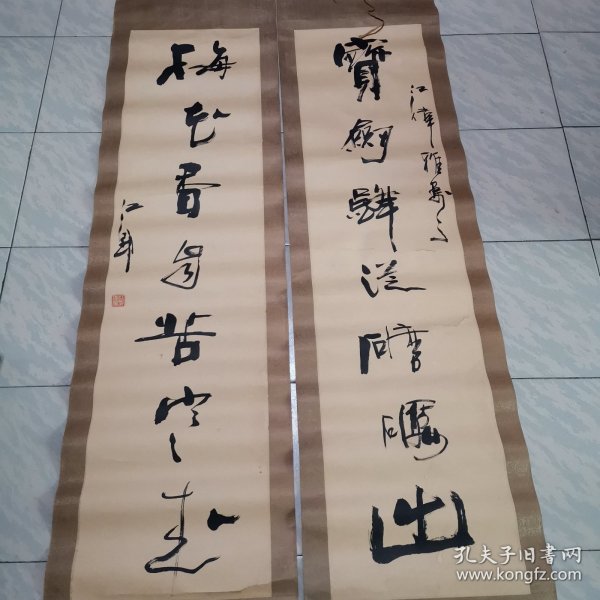 寶劍鋒從磨礪出
江偉雅
梅花香自苦寒來
江
孔夫子旧书网
www.kongfz.com